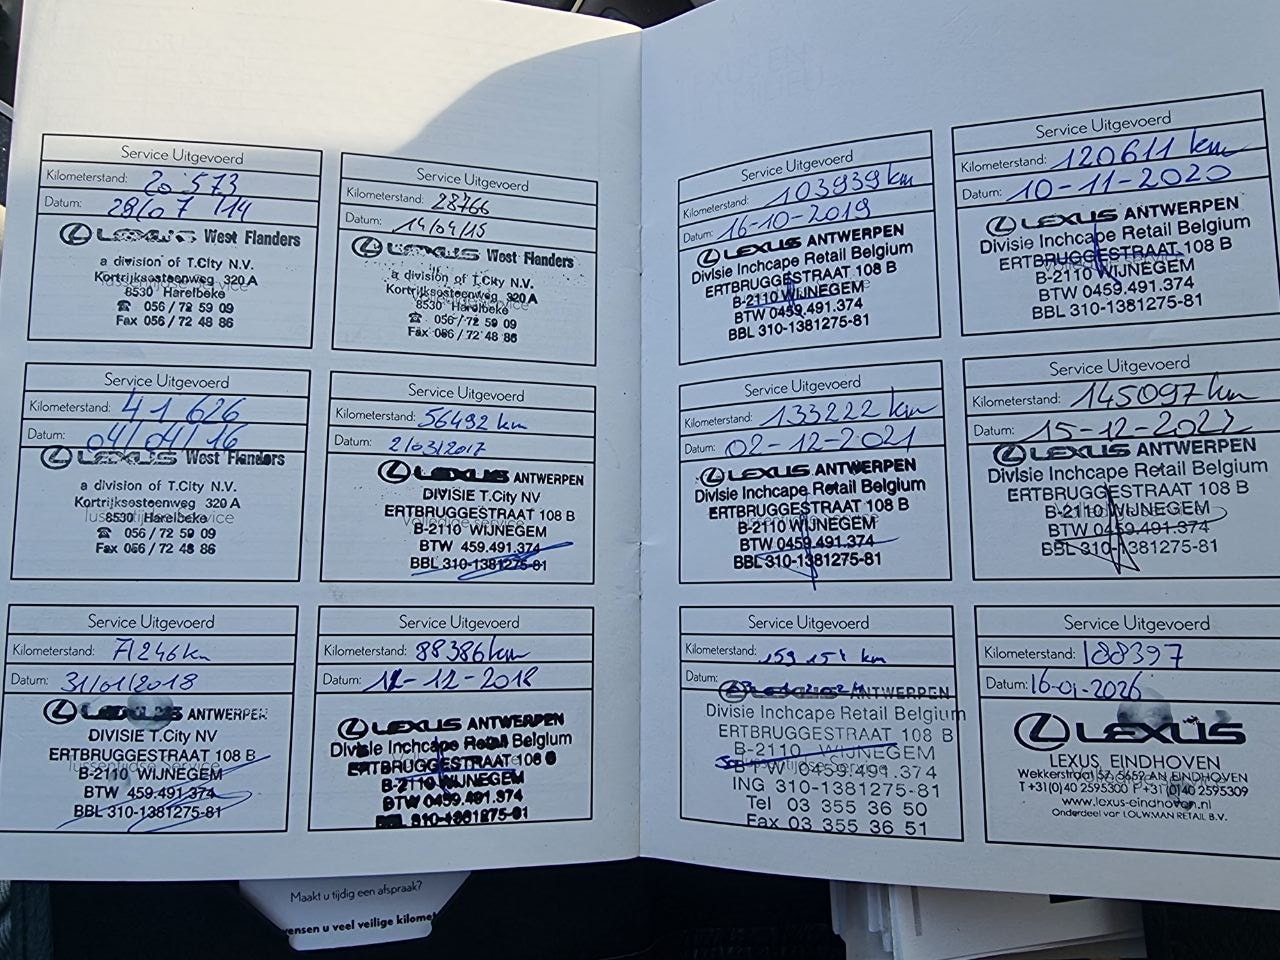 Service Uitgevoerd
Kilometerstand: 20.573
Datum: 29/07/14
LEXUS West Flanders
a division of T.City N.V.
Kortrijksesteenweg 320 A
8530 Harelbeke
☎ 056 / 72 59 09
Fax 056 / 72 48 86
Service Uitgevoerd
Kilometerstand: 28766
Datum: 14/04/15
LEXUS West Flanders
a division of T.City N.V.
Kortrijksesteenweg 320 A
8530 Harelbeke
☎ 056 / 72 59 09
Fax 056 / 72 48 86
Service Uitgevoerd
Kilometerstand: 41626
Datum: 04/04/16
LEXUS West Flanders
a division of T.City N.V.
Kortrijksesteenweg 320 A
8530 Harelbeke
Tussentijdse service
☎ 056 / 72 59 09
Fax 056 / 72 48 86
Service Uitgevoerd
Kilometerstand: 56492 km
Datum: 2/03/2017
LEXUS ANTWERPEN
DIVISIE T.City NV
ERTBRUGGESTRAAT 108 B
Volledige service
B-2110 WIJNEGEM
BTW 459.491.374
BBL 310-1381275-81
Service Uitgevoerd
Kilometerstand: 71246 km
Datum: 31/01/2018
LEXUS ANTWERPEN
DIVISIE T.City NV
ERTBRUGGESTRAAT 108 B
Tussentijdse Service
B-2110 WIJNEGEM
BTW 459.491.374
BBL 310-1381275-81
Service Uitgevoerd
Kilometerstand: 88386 km
Datum: 12-12-2018
LEXUS ANTWERPEN
Divisie Inchcape Retail Belgium
ERTBRUGGESTRAAT 108 B
B-2110 WIJNEGEM
BTW 0459.491.374
BBL 310-1381275-81
Service Uitgevoerd
Kilometerstand: 103939 km
Datum: 16-10-2019
LEXUS ANTWERPEN
Divisie Inchcape Retail Belgium
ERTBRUGGESTRAAT 108 B
B-2110 WIJNEGEM
BTW 0459.491.374
BBL 310-1381275-81
Service Uitgevoerd
Kilometerstand: 120611 km
Datum: 10-11-2020
LEXUS ANTWERPEN
Divisie Inchcape Retail Belgium
ERTBRUGGESTRAAT 108 B
B-2110 WIJNEGEM
BTW 0459.491.374
BBL 310-1381275-81
Service Uitgevoerd
Kilometerstand: 133222 km
Datum: 02-12-2021
LEXUS ANTWERPEN
Divisie Inchcape Retail Belgium
ERTBRUGGESTRAAT 108 B
B-2110 WIJNEGEM
BTW 0459.491.374
BBL 310-1381275-81
Service Uitgevoerd
Kilometerstand: 145097 km
Datum: 15-12-2022
LEXUS ANTWERPEN
Divisie Inchcape Retail Belgium
ERTBRUGGESTRAAT 108 B
B-2110 WIJNEGEM
BTW 0459.491.374
BBL 310-1381275-81
Service Uitgevoerd
Kilometerstand: 159 151 km
Datum:
LEXUS ANTWERPEN
Divisie Inchcape Retail Belgium
ERTBRUGGESTRAAT 108 B
B-2110 WIJNEGEM
BTW 0459.491.374
ING 310-1381275-81
Tel 03 355 36 50
Fax 03 355 36 51
Service Uitgevoerd
Kilometerstand: 188397
Datum: 16-01-2026
LEXUS
LEXUS EINDHOVEN
Wekkerstraat 57, 5652 AN EINDHOVEN
T +31(0)40 2595300 F +31(0)40 2595309
www.lexus-eindhoven.nl
Onderdeel van LOUWMAN RETAIL B.V.
Maakt u tijdig een afspraak?
wensen u veel veilige kilomet